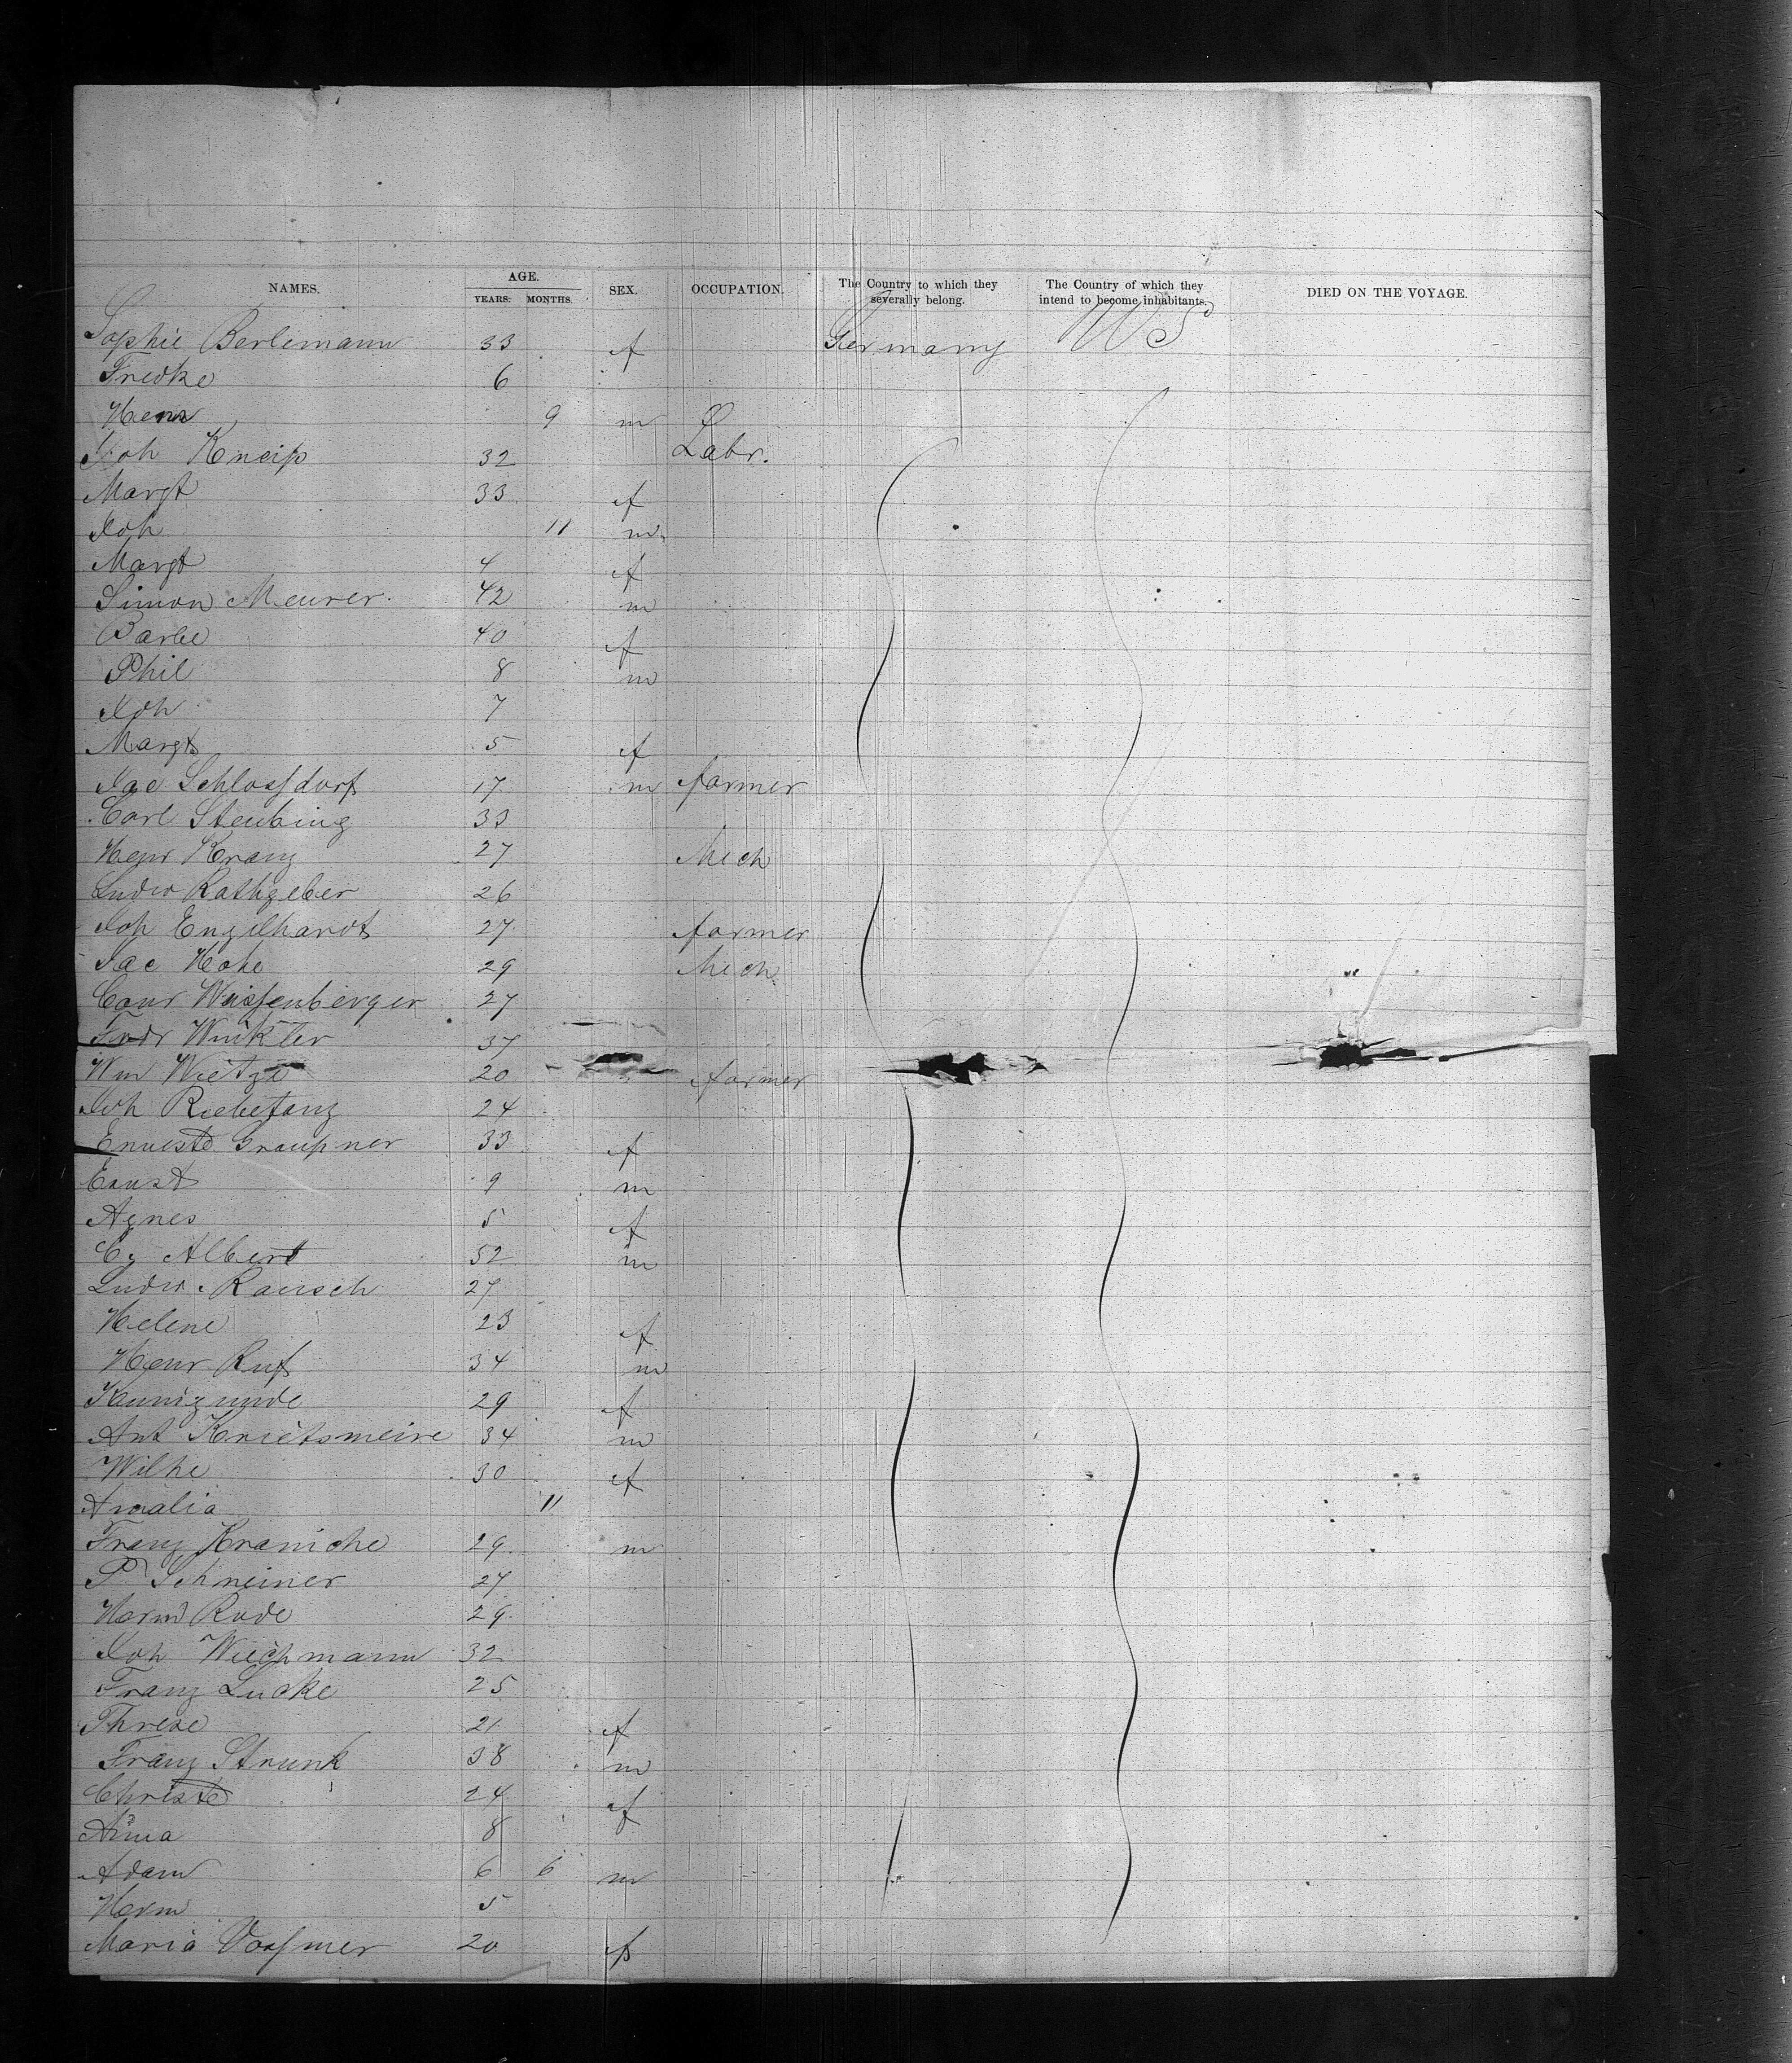 NAMES. AGE. YEARS. MONTHS. SEX. OCCUPATION. The Country to which they severally belong. The Country of which they intend to become inhabitants. DIED ON THE VOYAGE.
Sophie Berlemann 33 f Germany US
Fredke 6
Henr 9 m
Joh Kneip 32 Labr.
Margt 33 f
Joh 11 m
Margt 4 f
Simon Meurer 42 m
Barbe 40 f
Phil 8 m
Joh 7
Margt 5 f
Jac Schlossdorf 17 m farmer
Carl Steubing 33
Henr Kranz 27 Mech
Ludw Rathgeber 26
Joh Engelhardt 27 farmer
Jac Hohe 29 Mech
Conr Weissenberger 27
Fredr Winkler 37
Wm Wietze 20 farmer
Joh Riebefanz 24
Erneste Graupner 33 f
Ernst 9 m
Agnes 5 f
Cg Albert 52 m
Ludw. Rausch 27
Helene 23 f
Henr Ruf 34 m
Kunnigunde 29 f
Ant Knietsmeire 34 m
Wilhe 30 f
Amalia 11
Franz Kraniche 29 m
P Schreiner 27
Herm Rode 29
Joh Wiechmann 32
Franz Lucke 25
Threse 21 f
Franz Strunk 38 m
Christe 24 f
Anna 8
Adam 6 6 m
Herm 5
Maria Vossmer 20 f